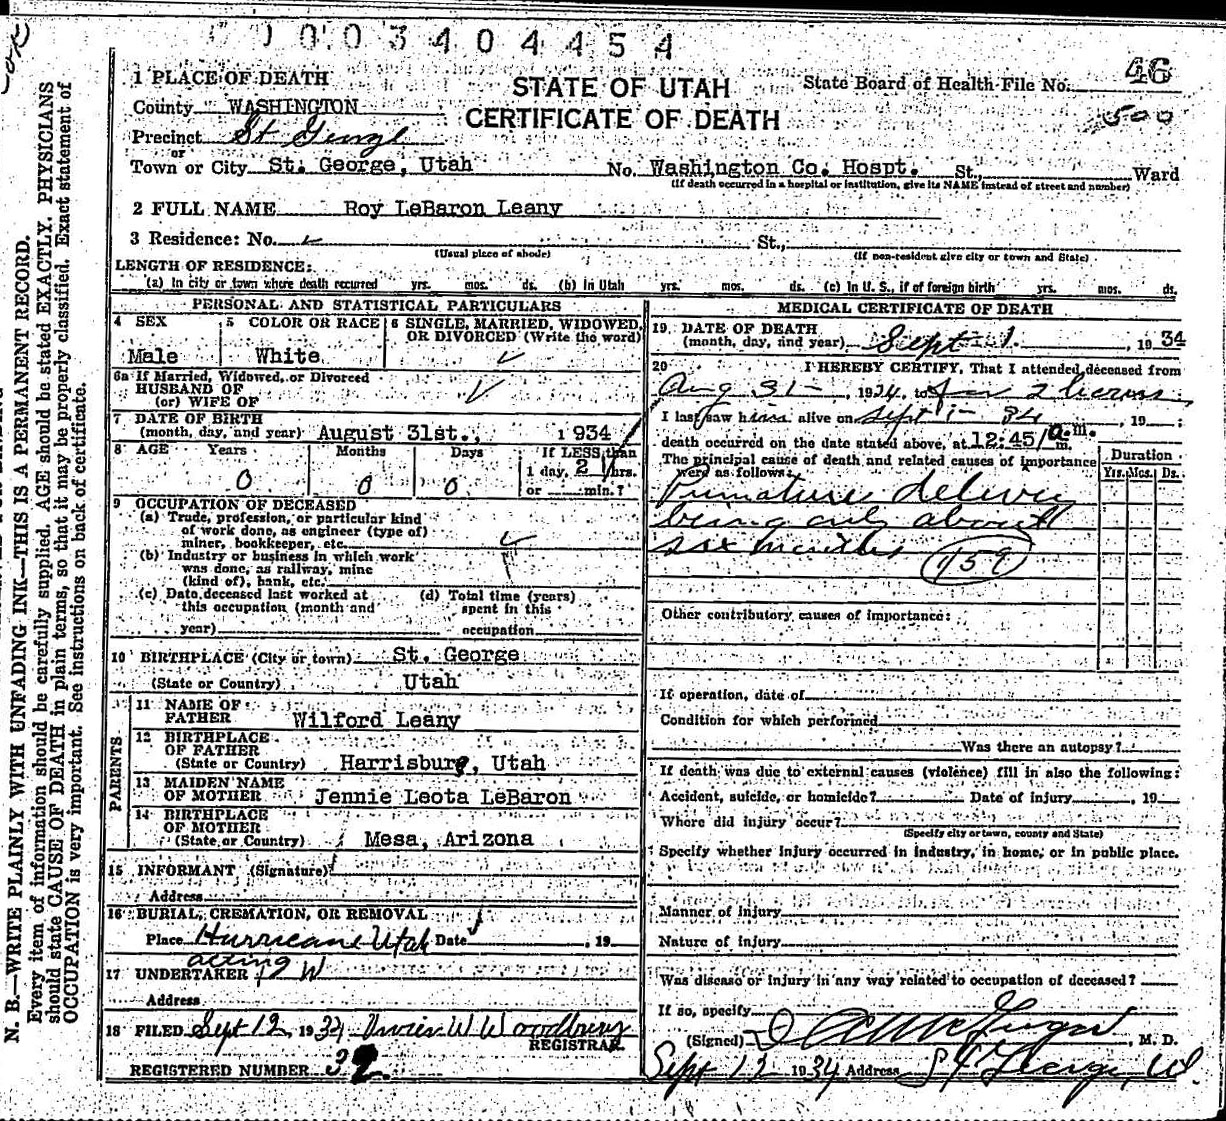 0003404454
1 PLACE OF DEATH
STATE OF UTAH
CERTIFICATE OF DEATH
State Board of Health File No. 46
500
County WASHINGTON
Precinct St George
or
Town or City St. George, Utah No. Washington Co. Hospt. St., Ward
(If death occurred in a hospital or institution, give its NAME instead of street and number)
2 FULL NAME Roy LeBaron Leany
3 Residence: No. St.,
(Usual place of abode) (If non-resident give city or town and State)
LENGTH OF RESIDENCE:
(a) In city or town where death occurred yrs. mos. ds. (b) In Utah yrs. mos. ds. (c) In U. S., if of foreign birth yrs. mos. ds.
PERSONAL AND STATISTICAL PARTICULARS
4 SEX
Male
5 COLOR OR RACE
White
6 SINGLE, MARRIED, WIDOWED, OR DIVORCED (Write the word)
6a If Married, Widowed, or Divorced
HUSBAND OF
(or) WIFE OF
7 DATE OF BIRTH
(month, day, and year) August 31st., 1934
8 AGE Years Months Days If LESS than
1 day, 2 hrs.
0 0 0 or min.?
9 OCCUPATION OF DECEASED
(a) Trade, profession, or particular kind
of work done, as engineer (type of)
miner, bookkeeper, etc.
(b) Industry or business in which work
was done, as railway, mine
(kind of), bank, etc.
(c) Date deceased last worked at
this occupation (month and
year)
(d) Total time (years)
spent in this
occupation
10 BIRTHPLACE (City or town) St. George
(State or Country) Utah
PARENTS
11 NAME OF
FATHER Wilford Leany
12 BIRTHPLACE
OF FATHER
(State or Country) Harrisburg, Utah
13 MAIDEN NAME
OF MOTHER Jennie Leota LeBaron
14 BIRTHPLACE
OF MOTHER
(State or Country) Mesa, Arizona
15 INFORMANT (Signature)
Address
16 BURIAL, CREMATION, OR REMOVAL
Place Hurricane Utah Date , 19
acting
17 UNDERTAKER
Address
18 FILED Sept 12 1934 W Woodbury
REGISTRAR
REGISTERED NUMBER 32
MEDICAL CERTIFICATE OF DEATH
19 DATE OF DEATH
(month, day, and year) Sept 1. , 1934
20 I HEREBY CERTIFY, That I attended deceased from
Aug 31 - , 1934, to for 2 hours
I last saw him alive on Sept 1 - 34 , 19 ;
death occurred on the date stated above, at 12:45/a.m. m.
The principal cause of death and related causes of importance
were as follows:
Duration
Yrs. Mos. Ds.
Premature delivery
being only about
six months 159
Other contributory causes of importance:
If operation, date of
Condition for which performed
Was there an autopsy?
If death was due to external causes (violence) fill in also the following:
Accident, suicide, or homicide? Date of injury , 19
Where did injury occur?
(Specify city or town, county and State)
Specify whether injury occurred in industry, in home, or in public place.
Manner of injury
Nature of injury
Was disease or injury in any way related to occupation of deceased?
If so, specify
(Signed) McGregor , M. D.
Sept 12 1934 Address St George, Ut.
N. B.—WRITE PLAINLY WITH UNFADING INK—THIS IS A PERMANENT RECORD.
Every item of information should be carefully supplied. AGE should be stated EXACTLY. PHYSICIANS
should state CAUSE OF DEATH in plain terms, so that it may be properly classified. Exact statement of
OCCUPATION is very important. See instructions on back of certificate.